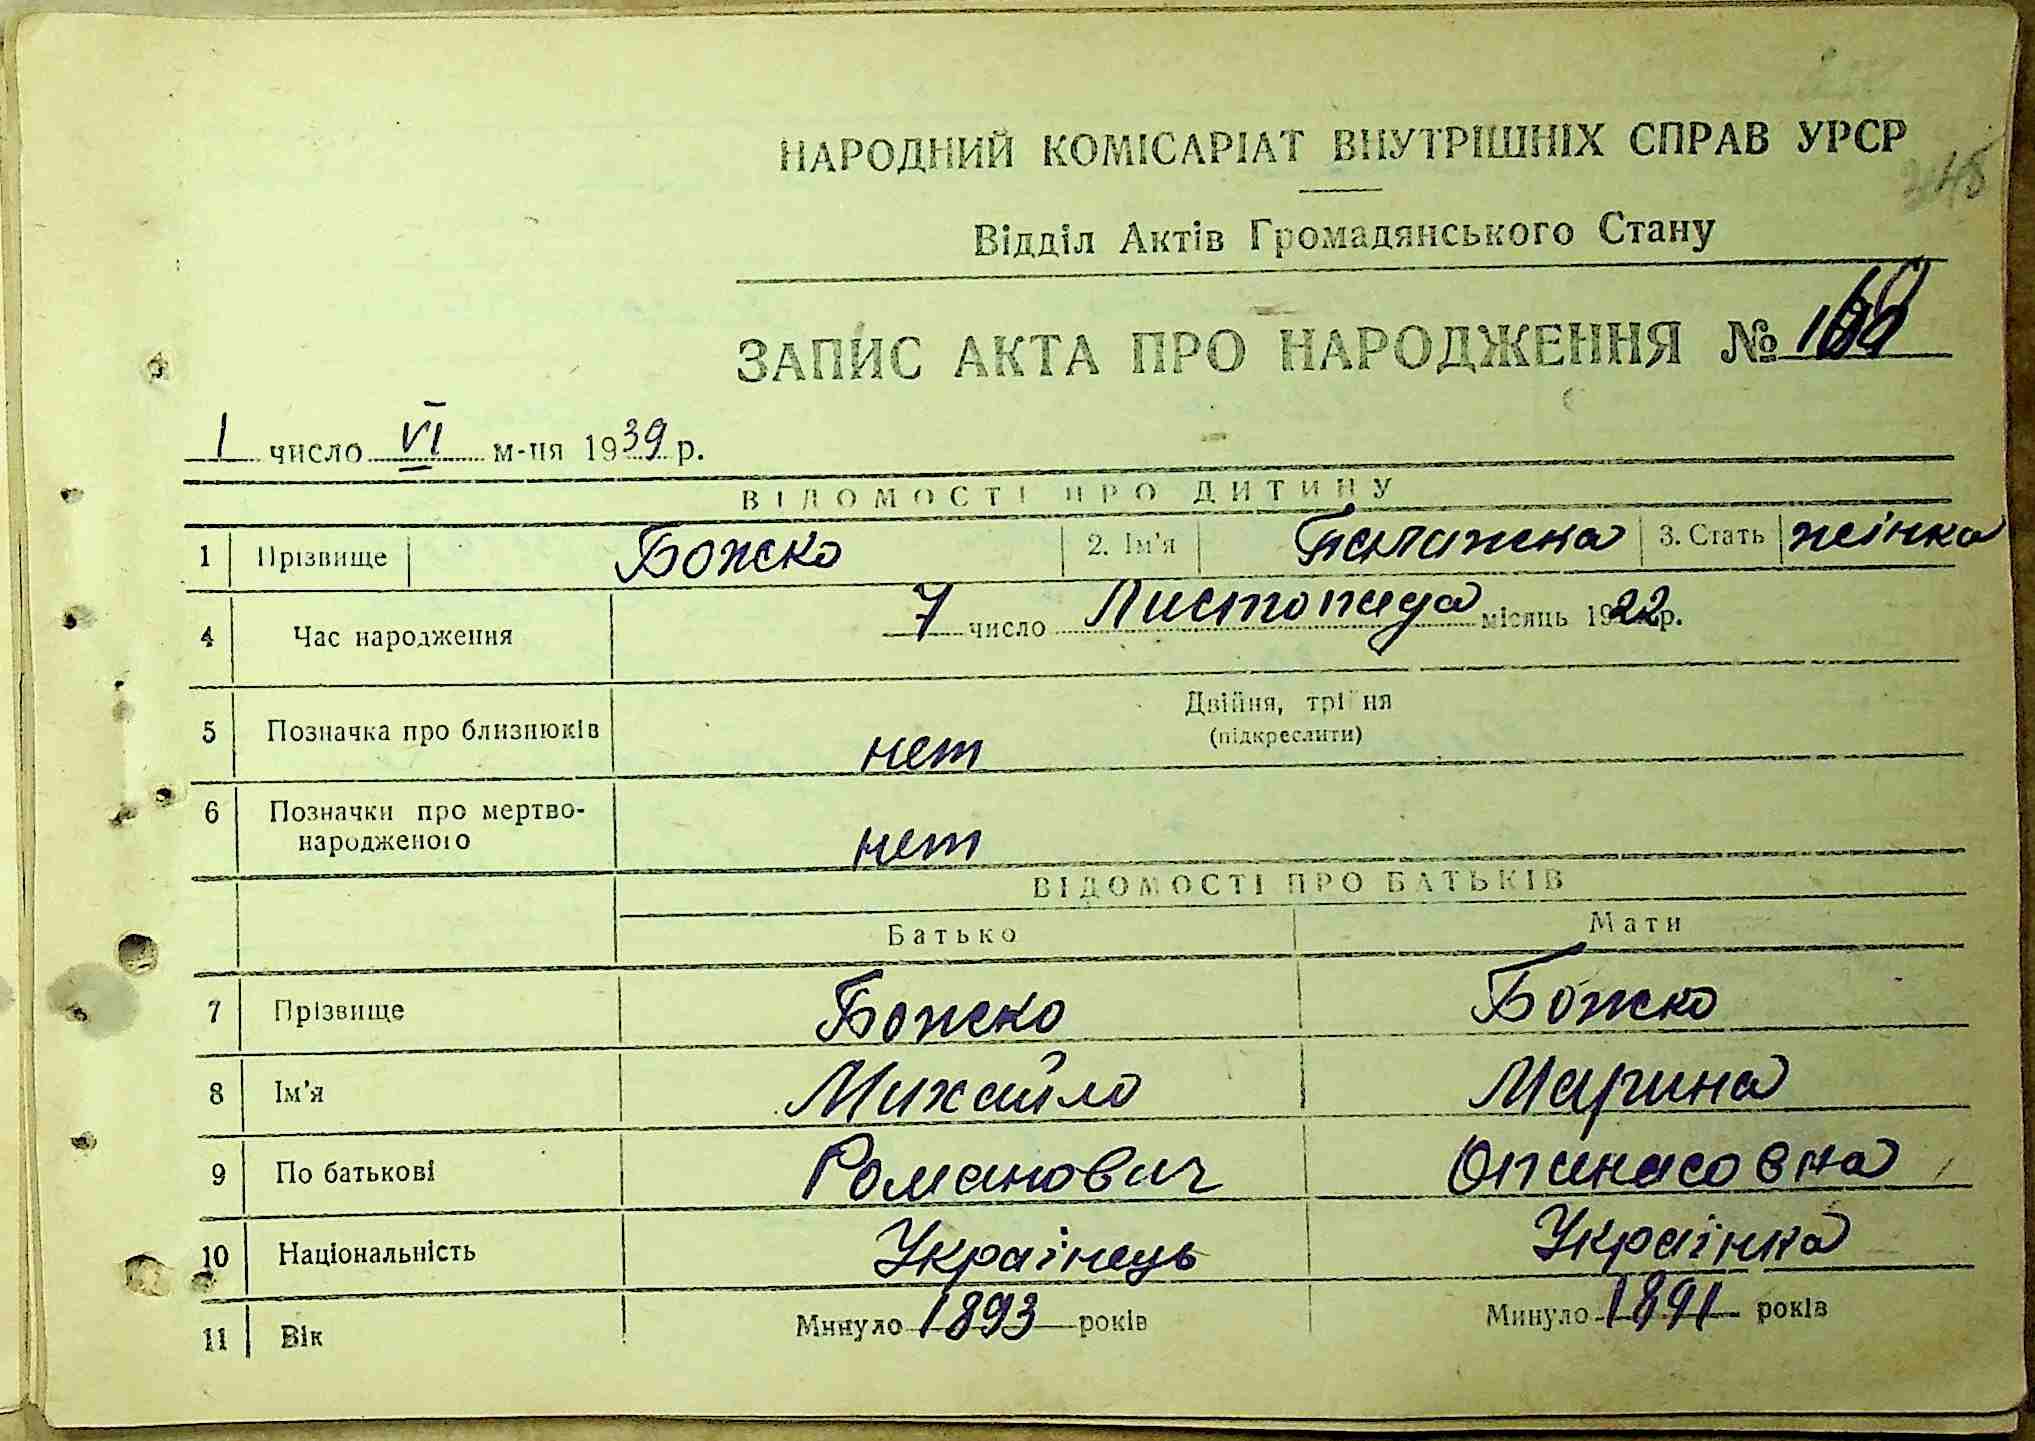 НАРОДНИЙ КОМІСАРІАТ ВНУТРІШНІХ СПРАВ УРСР
Відділ Актів Громадянського Стану
ЗАПИС АКТА ПРО НАРОДЖЕННЯ №
1 число VI м-ця 1939 р.
ВІДОМОСТІ ПРО ДИТИНУ
1 Прізвище Божко 2. Ім'я 3. Стать жінка
4 Час народження 7 число Листопада місяць 1922 р.
5 Позначка про близнюків нет Двійня, трійня
(підкреслити)
6 Позначки про мертво-
народженого нет
ВІДОМОСТІ ПРО БАТЬКІВ
Батько Мати
7 Прізвище Божко Божко
8 Ім'я Михайло Марина
9 По батькові Романович Опанасовна
10 Національність Українець Українка
11 Вік Минуло 1893 років Минуло 1891 років